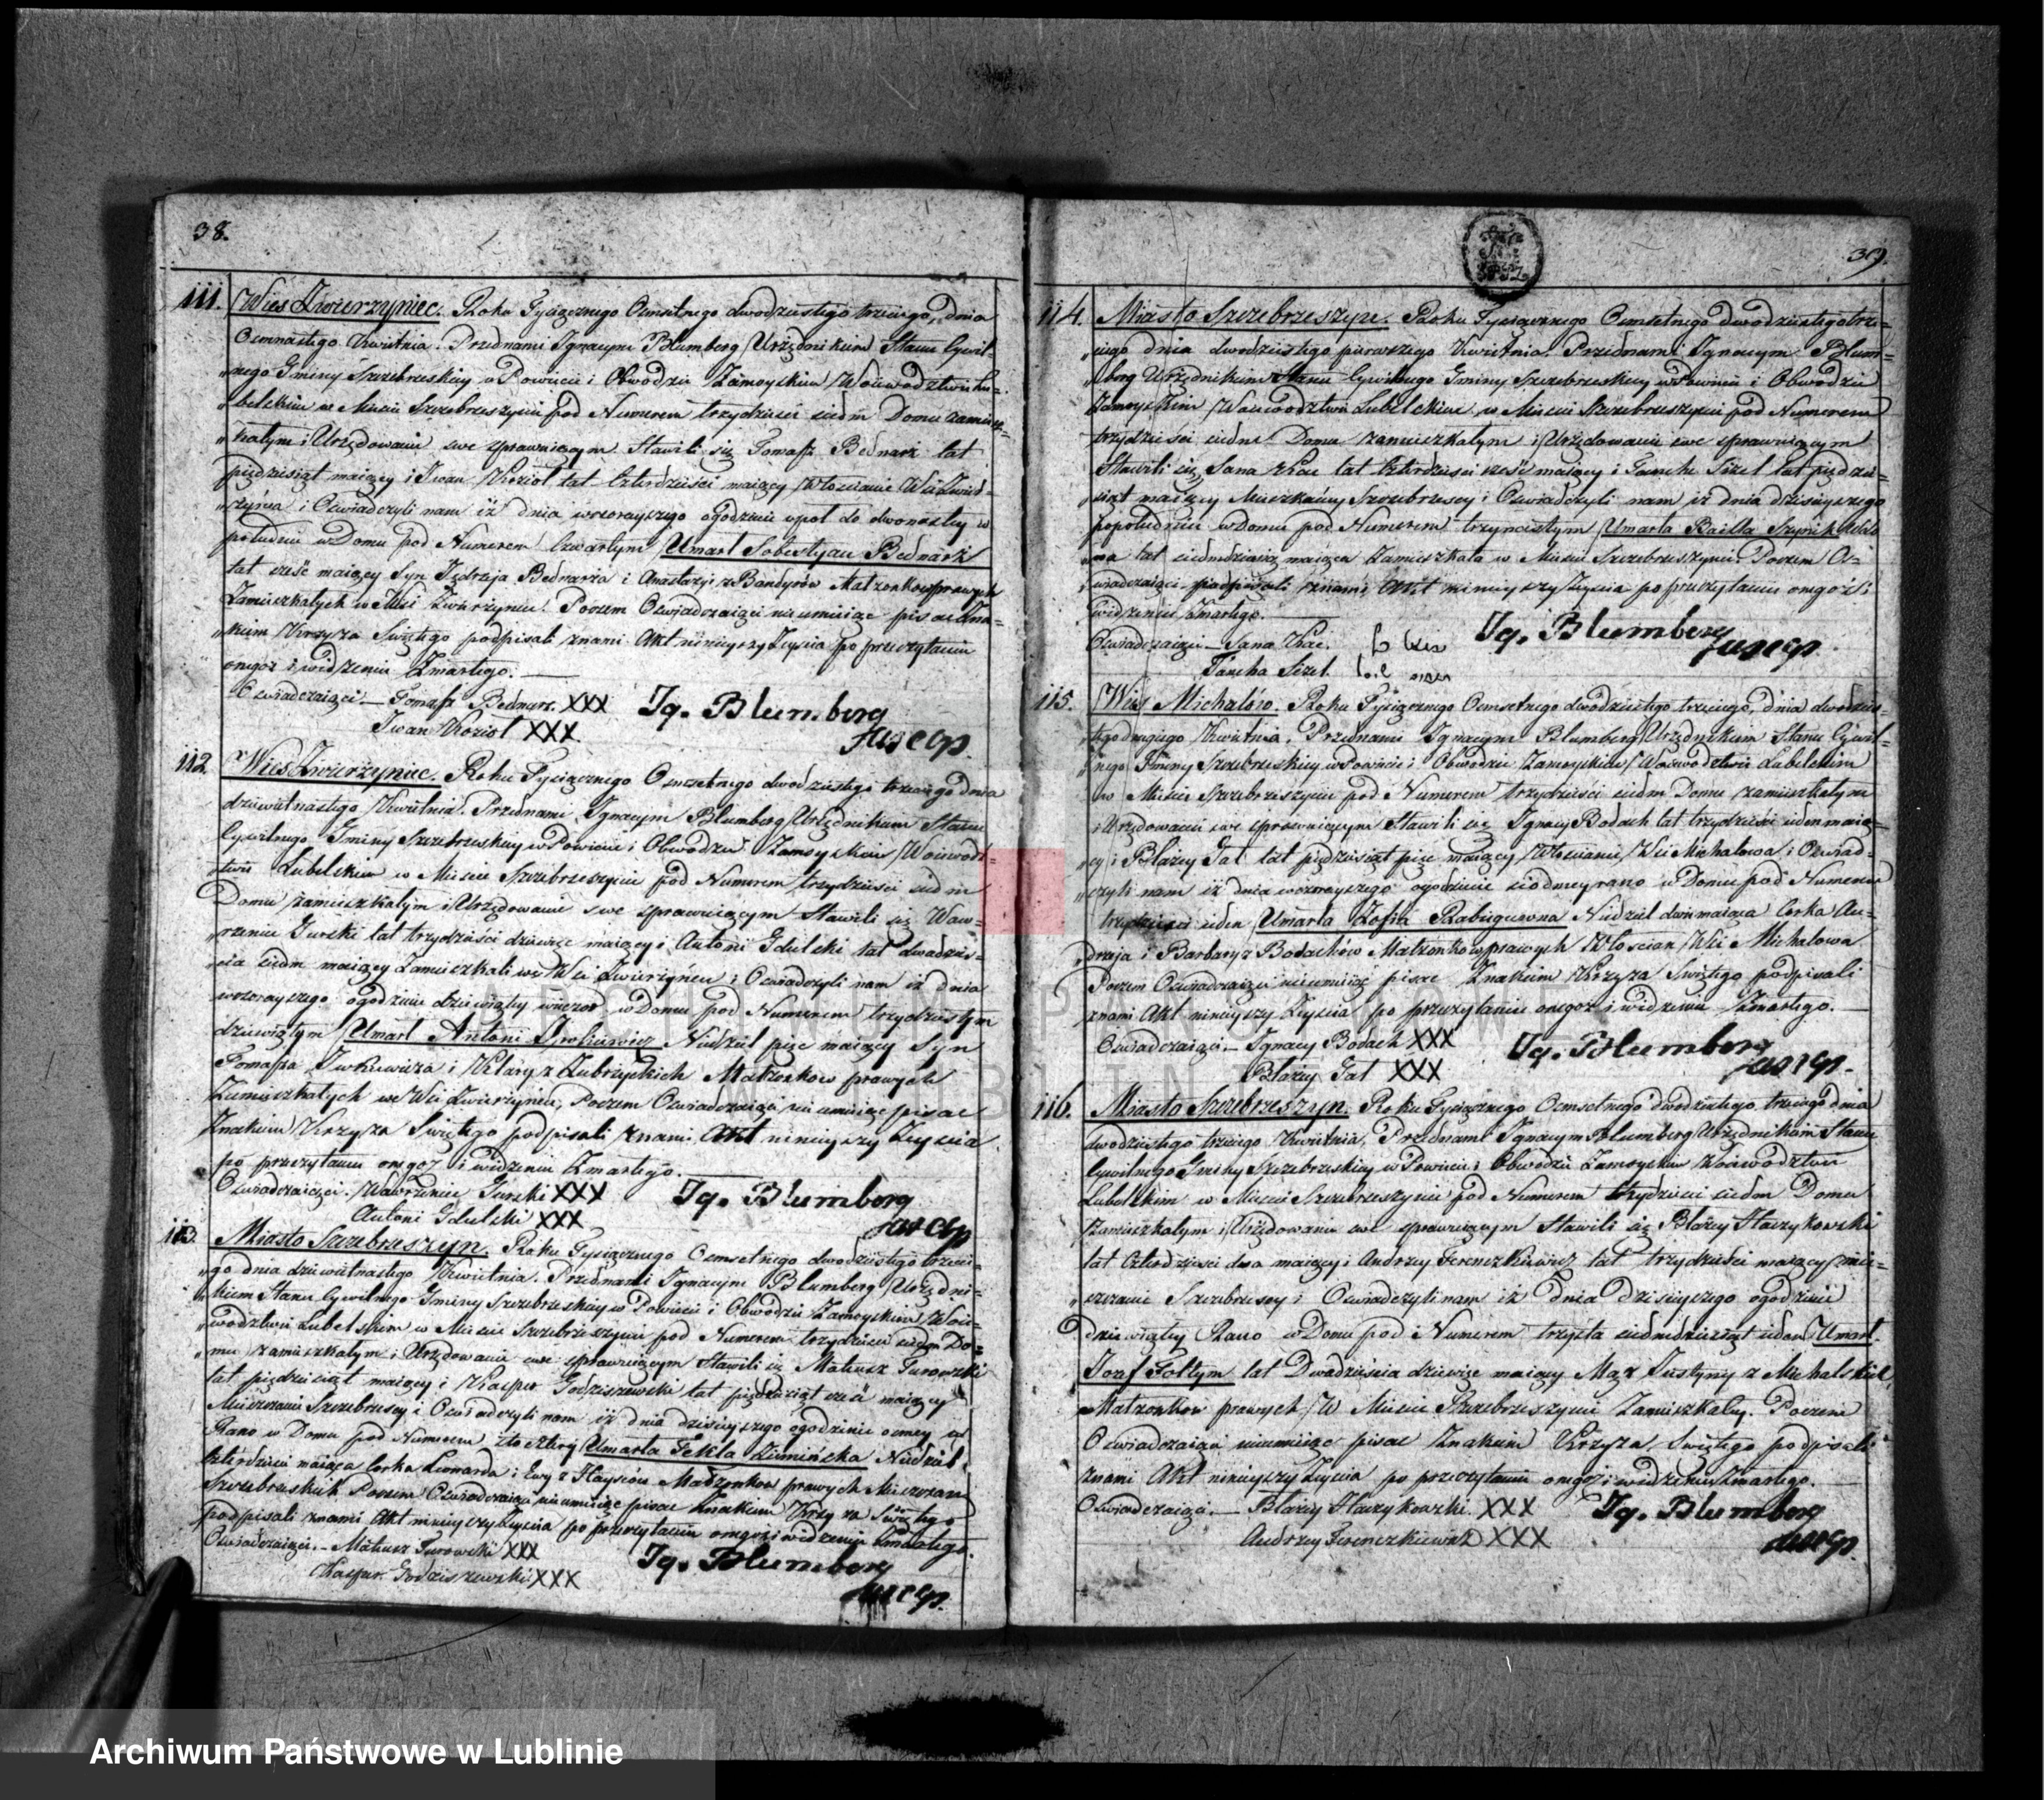 38.
111. Wieś Zwierzyniec. Roku Tysiącznego Ośmsetnego dwódziestego trzeciego, dnia
Ośmnastego Kwietnia. Przednami Ignacym Blumberg Urzędnikiem Stanu Cywil-
„nego Gminy Szczebrzeskiey w Powiecie i Obwodzie Zamoyskim Woiewodztwie Lu-
„belskim w Mieście Szczebrzeszynie pod Numerem trzydzieści siedm Domu zamiesz-
„kałym i Urzędowanie swe sprawuiącym Stawili się Tomasz Bednarz lat
pięćdziesiąt maiący i Iwan Kozioł lat czterdzieści maiący Włościanie Wsi Zwie-
rzyńca i Oświadczyli nam iż dnia wczorayszego ogodzinie wpół do dwónastey w
południe w Domu pod Numerem Czwartym Umarł Sobestyan Bednarz
lat sześć maiący Syn Jędrzeja Bednarza i Anastazyi z Bandyrów Małżonków prawych
Zamieszkałych w Wsi Zwierzyńcu. Poczem Oświadczaiący nieumieiąc pisać Zna-
„kiem Krzyża Świętego podpisali znami Akt ninieyszy Zeyścia po przeczytaniu
onegoż i widzeniu Zmarłego.
Oświadczaiący Tomasz Bednarz XXX Ig. Blumberg
Iwan Kozioł XXX
112. Wieś Zwierzyniec. Roku Tysiącznego Ośmsetnego dwodziestego trzeciego dnia
dziewiętnastego Kwietnia. Przednami Ignacym Blumberg Urzędnikiem Stanu
Cywilnego Gminy Szczebrzeskiey w Powiecie i Obwodzie Zamoyskim Woiewodz-
twie Lubelskim w Mieście Szczebrzeszynie pod Numerem trzydzieści siedm
Domu zamieszkałym i Urzędowanie swe sprawuiącym Stawili się Waw-
„rzeniec Gurski lat trzydzieści dziewięć maiący i Antoni Gdulski lat dwadzieś-
„cia siedm maiący Zamieszkali we Wsi Zwierzyńcu i Oświadczyli nam iż dnia
wczorayszego ogodzinie dziewiątey wieczor w Domu pod Numerem trzydziestym
dziewiątym Umarł Antoni Niedziel pięć maiący Syn
Tomasza i Klary z Zubrzyckich Małżonków prawych
Zamieszkałych we Wsi Zwierzyńcu, Poczem Oświadczaiący nie umieiąc pisać
Znakiem Krzyża Świętego podpisali znami Akt ninieyszy Zeyścia
po przeczytaniu onegoż i widzeniu Zmarłego.
Oświadczaiący. Wawrzeniec Gurski XXX Ig. Blumberg
Antoni Gdulski XXX
113. Miasto Szczebrzeszyn. Roku Tysiącznego Ośmsetnego dwodziestego trzecie-
„go dnia dziewiętnastego Kwietnia. Przednami Ignacym Blumberg Urzędni-
„kiem Stanu Cywilnego Gminy Szczebrzeskiey w Powiecie i Obwodzie Zamoyskim Woie-
„wodztwie Lubelskim w Mieście Szczebrzeszynie pod Numerem trzydzieści siedm Do-
„mu zamieszkałym i Urzędowanie swe sprawuiącym Stawili się Mateusz Turowski
lat pięćdziesiąt maiący i Kasper Godziszewski lat pięćdziesiąt sześć maiący
Mieszczanie Szczebrzescy i Oświadczyli nam iż dnia dzisieyszego ogodzinie osmey z
Rana w Domu pod Numerem sto cztery Umarła Tekla Zimińska Niedziel
czterdzieści maiąca Corka Leonarda i Ewy z Małżonków prawych Mieszczan
Szczebrzeskich Poczem Oświadczaiący nieumieiąc pisać Znakiem Krzyża Świętego
podpisali znami Akt ninieyszy Zeyścia po przeczytaniu onegoż i widzeniu Zmarłego.
Oświadczaiący. Mateusz Turowski XXX Ig. Blumberg
Kasper Godziszewski XXX
39.
114. Miasto Szczebrzeszyn. Roku Tysiącznego Ośmsetnego Dwodziestego trze-
„ciego dnia dwodziestego pierwszego Kwietnia. Przednami Ignacym Blum-
„berg Urzędnikiem Stanu Cywilnego Gminy Szczebrzeskiey w Powiecie i Obwodzie
Zamoyskim Woiewodztwie Lubelskim w Mieście Szczebrzeszynie pod Numerem
trzydzieści siedm Domu zamieszkałym i Urzędowanie swe sprawuiącym
Stawili się Sana Kac lat czterdzieści sześć maiący i Tancha Sizel lat pięćdzie-
„siąt maiący Mieszkańcy Szczebrzescy i Oświadczyli nam iż dnia dzisieyszego
popołudniu w Domu pod Numerem trzynastym Umarła Railla
lat siedmdziesiąt maiąca Zamieszkała w Mieście Szczebrzeszynie. Poczem Oś-
„wiadczaiący podpisali znami Akt ninieyszy Zeyścia po przeczytaniu onegoż i
widzeniu Zmarłego.
Oświadczaiący Sana Kac. Ig. Blumberg
Tancha Sizel.
115. Wieś Michalów. Roku Tysiącznego Ośmsetnego dwodziestego trzeciego, dnia dwodzies-
„tego drugiego Kwietnia, Przednami Ignacym Blumberg Urzędnikiem Stanu Cywil-
„nego Gminy Szczebrzeskiey w Powiecie i Obwodzie Zamoyskim Woiewodztwie Lubelskim
w Mieście Szczebrzeszynie pod Numerem trzydzieści siedm Domu zamieszkałym
i Urzędowanie swe sprawuiącym Stawili się Ignacy Bodach lat trzydzieści ieden maią-
„cy i Błażey Gał lat pięćdziesiąt pięć maiący Włościanie Wsi Michalowa i Oświad-
„czyli nam iż dnia wczorayszego ogodzinie siodmey rano w Domu pod Numerem
trzydzieści ieden Umarła Zofia Niedziel dwie maiąca Corka An-
„drzeja i Barbary z Bodachów Małżonków prawych Włościan Wsi Michalowa.
Poczem Oświadczaiący nieumieiąc pisać Znakiem Krzyża Świętego podpisali
znami Akt ninieyszy Zeyścia po przeczytaniu onegoż i widzeniu Zmarłego.
Oświadczaiący. Ignacy Bodach XXX Ig. Blumberg
Błażey Gał XXX
116. Miasto Szczebrzeszyn. Roku Tysiącznego Ośmsetnego dwodziestego trzeciego dnia
dwodziestego trzeciego Kwietnia, Przednami Ignacym Blumberg Urzędnikiem Stanu
Cywilnego Gminy Szczebrzeskiey w Powiecie i Obwodzie Zamoyskim Woiewodztwie
Lubelskim w Mieście Szczebrzeszynie pod Numerem trzydzieści siedm Domu
Zamieszkałym i Urzędowanie swe sprawuiącym Stawili się Błażey Haczykowski
lat czterdzieści dwa maiący i Andrzey Ferenczkiewicz lat trzydzieści maiący miesz-
„czanie Szczebrzescy i Oświadczyli nam iż dnia dzisieyszego ogodzinie
dziewiątey Rano w Domu pod Numerem trzysta siedmdziesiąt ieden Umarł
Iozef Foltym lat Dwadzieścia dziewięć maiący Mąż Justyny z Michalskich
Małżonków prawych W Mieście Szczebrzeszynie Zamieszkały. Poczem
Oświadczaiący nieumieiąc pisać Znakiem Krzyża Świętego podpisali
znami Akt ninieyszy Zeyścia po przeczytaniu onegoż i widzeniu Zmarłego.
Oświadczaiący. Błażey Haczykowski XXX Ig. Blumberg
Andrzey Ferenczkiewicz XXX
Archiwum Państwowe w Lublinie